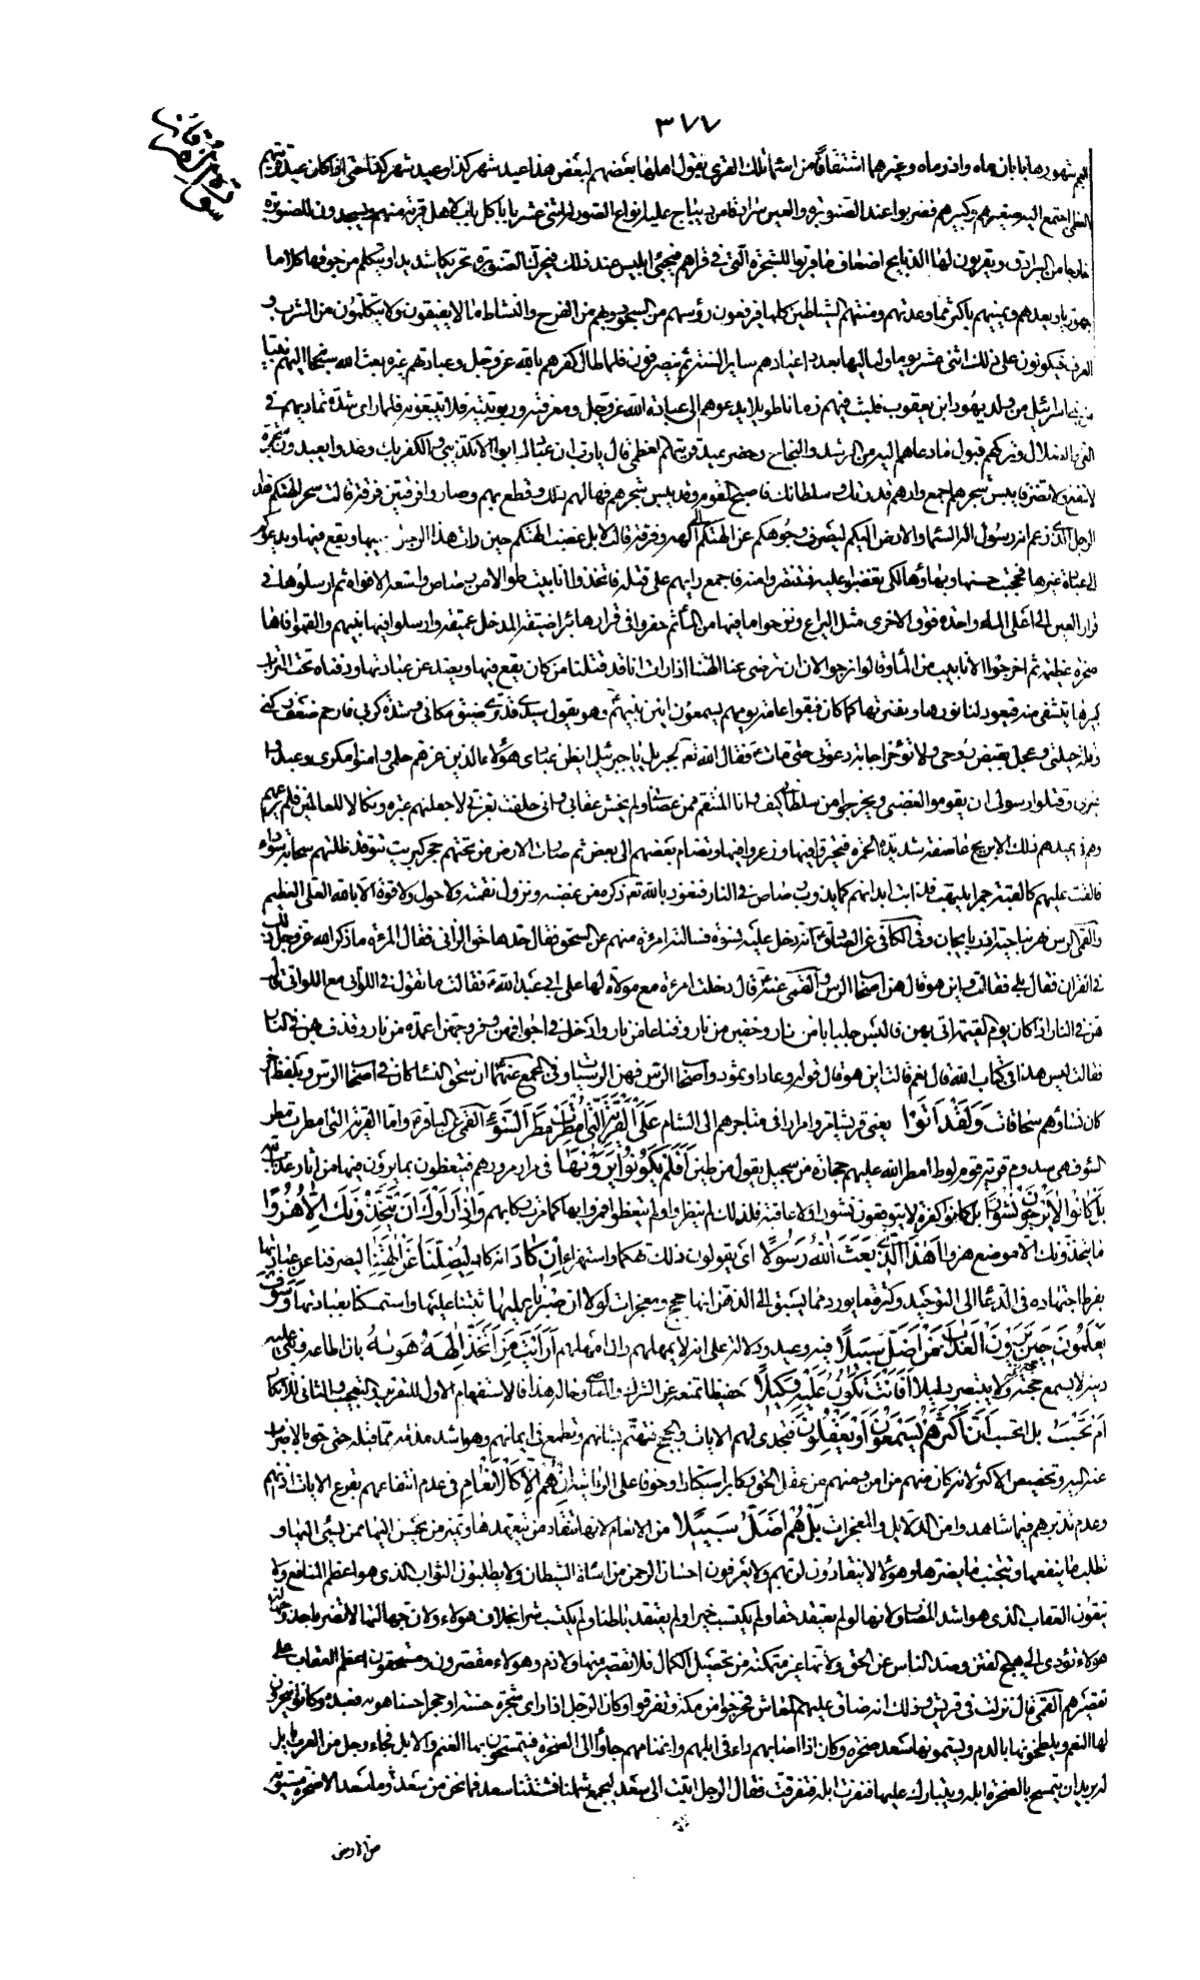 ٣٧٧
سورة الفرقان
شهورها بابان ماه واذر ماه وغيرهما اشتقاقا من اسماء تلك القرى يقول اهلها بعضهم لبعض هذا عيد شهر كذا وعيد شهر كذا حتى اذا كان عيد قريتهم
العظمى اجتمع اليه صغيرهم وكبيرهم فضربوا عند الصنوبرة والعين سرادقا من ديباج عليه انواع الصور له اثنى عشر بابا كل باب لاهل قرية منهم ويسجدون للصنوبرة
خارجا من السرادق ويقربون لها الذبايح اضعاف ما قربوا للشجرة التى في قراهم فيجئ ابليس عند ذلك فيحرك الصنوبرة تحريكا شديدا ويتكلم من جوفها كلاما
جهوريا ويعدهم ويمنيهم باكثر مما وعدتهم ومنتهم الشياطين كلها فيرفعون رؤسهم من السجود وبهم من الفرح والنشاط ما لا يفيقون ولا يتكلمون من الشرب و
العزف فيكونون على ذلك اثنى عشر يوما ولياليها بعدد اعيادهم ساير السنة ثم ينصرفون فلما طال كفرهم بالله عز وجل وعبادتهم غيره بعث الله سبحانه اليهم نبيا
من بني اسرائيل من ولد يهود ابن يعقوب فلبث فيهم زمانا طويلا يدعوهم الى عبادة الله عز وجل ومعرفة ربوبيته فلا يتبعونه فلما راى شدة تماديهم في
الغي والضلال وتركهم قبول ما دعاهم اليه من الرشد والنجاح وحضر عيد قريتهم العظمى قال يا رب ان عبادك ابوا الا تكذيبي والكفر بك وغدوا يعبدون شجرة
لا تنفع ولا تضر فايبس شجرهم اجمع وارهم قدرتك وسلطانك فاصبح القوم وقد يبس شجرهم فهالهم ذلك وقطع بهم وصاروا فرقتين فرقة قالت سحر الهتكم هذا
الرجل الذي زعم انه رسول اله السماء والارض اليكم ليصرف وجوهكم عن الهتكم الى الهه وفرقة قالت لا بل غضبت الهتكم حين رات هذا الرجل يعيبها ويقع فيها ويدعوكم
الى عبادة غيرها فحجبت حسنها وبهاؤها لكى تغضبوا عليه فتنتصروا منه فاجمع رايهم على قتله فاتخذوا انابيب طوالا من رصاص واسعة الافواه ثم ارسلوها في
قرار العين الى اعلى الماء واحدة فوق الاخرى مثل البرابخ ونزحوا ما فيها من الماء ثم حفروا في قرارها بئرا ضيقة المدخل عميقة وارسلوا فيها نبيهم والقموا فاها
صخرة عظيمة ثم اخرجوا الانابيب من الماء وقالوا نرجوا الان ان ترضى عنا الهتنا اذا رات انا قد قتلنا من كان يقع فيها ويصد عن عبادتها ودفناه تحت التراب
كبيرها يتشفى منه فيعود لنا نورها ونضرتها كما كان فبقوا عامة يومهم يسمعون انين نبيهم وهو يقول سيدى قد ترى ضيق مكاني وشدة كربي فارحم ضعف ركني
وقلة حيلتي وعجل بقبض روحي ولا تؤخر اجابة دعوتي حتى مات فقال الله تع لجبرئيل يا جبرئيل ايظن عبادي هؤلاء الذين غرهم حلمي وامنوا مكري وعبدوا
غيري وقتلوا رسولي ان يقوموا لغضبي ويخرجوا من سلطاني كيف وانا المنتقم ممن عصاني ولم يخش عقابي واني حلفت بعزتي لاجعلنهم عبرة ونكالا للعالمين فلم يرعهم
وهم في عيدهم ذلك الا بريح عاصفة شديدة الحمرة فتحيروا فيها وذعروا فيها وتضام بعضهم الى بعض ثم صارت الارض من تحتهم حجر كبريت تتوقد واظلتهم سحابة سوداء
فالقت عليهم كالقبة جمرا يلتهب فذابت ابدانهم كما يذوب الرصاص في النار فنعوذ بالله تع ذكره من غضبه ونزول نقمته ولا حول ولا قوة الا بالله العلى العظيم
والقمى الرس نهر بناحية اذربايجان وفي الكافي عن الصادق ع انه دخل عليه نسوة فسالته امرءة منهم عن السحق فقال حدها حد الزاني فقال المرءة ما ذكر الله عز وجل ذلك
في القران فقال بلى فقالت واين هو قال هن اصحاب الرس والقمى عنه ع قال دخلت امرءة مع مولاة لها على ابي عبد الله ع فقالت ما تقول في اللواتي مع اللواتي قال
هن في النار اذا كان يوم القيمة اتى بهن فالبسن جلبابا من نار وخفين من نار وقناعا من نار وادخل في اجوافهن وفروجهن اعمدة من نار وقذف بهن في النار
فقالت اليس هذا في كتاب الله قال نعم قالت اين هو قال قوله وعادا وثمود واصحاب الرس فهن الرسيات وفي المجمع عنهما ع ان سحق النساء كان في اصحاب الرس
كان نساؤهم سحاقات وَلَقَدْ اَتَوْا يعني قريشا مروا مرارا في متاجرهم الى الشام عَلَى الْقَرْيَةِ الَّتِي اُمْطِرَتْ مَطَرَ السَّوْءِ القمى عن الباقر ع واما القرية التي امطرت مطر
السوء فهى سدوم قرية قوم لوط امطر الله عليهم حجارة من سجيل يقول من طين اَفَلَمْ يَكُونُوا يَرَوْنَهَا في مرار مرورهم فيتعظون بما يرون فيها من اثار عذاب الله
بَلْ كَانُوا لَا يَرْجُونَ نُشُورًا بل كانوا كفرة لا يتوقعون نشورا ولا عاقبة فلذلك لم ينظروا ولم يتعظوا فمروا بها كما مرت ركابهم وَاِذَا رَاَوْكَ اِنْ يَتَّخِذُونَكَ اِلَّا هُزُوًا
ما يتخذونك الا موضع هزو اَهٰذَا الَّذِي بَعَثَ اللّٰهُ رَسُولًا اى يقولون ذلك تهكما واستهزاء اِنْ كَادَ انه كاد لَيُضِلُّنَا عَنْ اٰلِهَتِنَا ليصرفنا عن عبادتها
بفرط اجتهاده في الدعاء الى التوحيد وكثرة ما يورد مما يسبق الى الذهن انها حجج ومعجزات لَوْلَا اَنْ صَبَرْنَا عَلَيْهَا ثبتنا عليها واستمسكنا بعبادتها وَسَوْفَ
يَعْلَمُونَ حِينَ يَرَوْنَ الْعَذَابَ مَنْ اَضَلُّ سَبِيلًا فيه وعيد ودلالة على انه لا يهملهم وان امهلهم اَرَاَيْتَ مَنِ اتَّخَذَ اِلٰهَهُ هَوٰيهُ بان اطاعه وبنى عليه
دينه لا يسمع حجة ولا يتبصر دليلا اَفَاَنْتَ تَكُونُ عَلَيْهِ وَكِيلًا حفيظا تمنعه عن الشرك والمعاصي وحاله هذا فالاستفهام الاول للتقرير والتعجيب والثاني للانكار
اَمْ تَحْسَبُ بل اتحسب اَنَّ اَكْثَرَهُمْ يَسْمَعُونَ اَوْ يَعْقِلُونَ فتجدى لهم الايات والحجج فتهتم بشانهم وتطمع في ايمانهم وهو اشد مذمة مما قبله حتى حق بالاضراب
عنه اليه وتخصيص الاكثر لانه كان منهم من امن ومنهم من عقل الحق وكابر استكبارا وخوفا على الرئاسة اِنْ هُمْ اِلَّا كَالْاَنْعَامِ في عدم انتفاعهم بقرع الايات اذانهم
وعدم تدبرهم فيما شاهدوا من الدلايل والمعجزات بَلْ هُمْ اَضَلُّ سَبِيلًا من الانعام لانها تنقاد من يتعهدها وتميز من يحسن اليها ممن يسئ اليها و
تطلب ما ينفعها وتتجنب ما يضرها وهؤلاء لا ينقادون لربهم ولا يعرفون احسان الرحمن من اساءة الشيطان ولا يطلبون الثواب الذى هو اعظم المنافع ولا
يتقون العقاب الذى هو اشد المضار ولانها لو لم يعتقد حقا ولم يكتسب خيرا ولم يعتقد باطلا ولم يكتسب شرا بخلاف هولاء ولان جهالتها لا تضر باحد وجهالة
هولاء تؤدى الى هيج الفتن وصد الناس عن الحق ولانها غير متمكنة من تحصيل الكمال فلا تقصير منها ولا ذم وهولاء مقصرون ومستحقون اعظم العقاب على
تقصيرهم القمى قال نزلت في قريش وذلك انه ضاق عليهم المعاش فخرجوا من مكة وتفرقوا وكان الرجل اذا راى شجرة حسنة او حجرا حسنا هويه فعبده وكانوا ينحرون
لها النعم ويلطخونها بالدم ويسمونها سعد صخرة وكان اذا اصابهم داء في ابلهم واغنامهم جاؤا الى الصخرة فيتمسحون بها الغنم والابل فجاء رجل من العرب بابل
له يريد ان يتمسح بالصخرة ابله ويتبارك عليها فنفرت ابله فتفرقت فقال الرجل اتيت الى سعد ليجمع شملنا فشتتنا سعد فما نحن من سعد وما سعد الا صخرة مستوية
من الارض